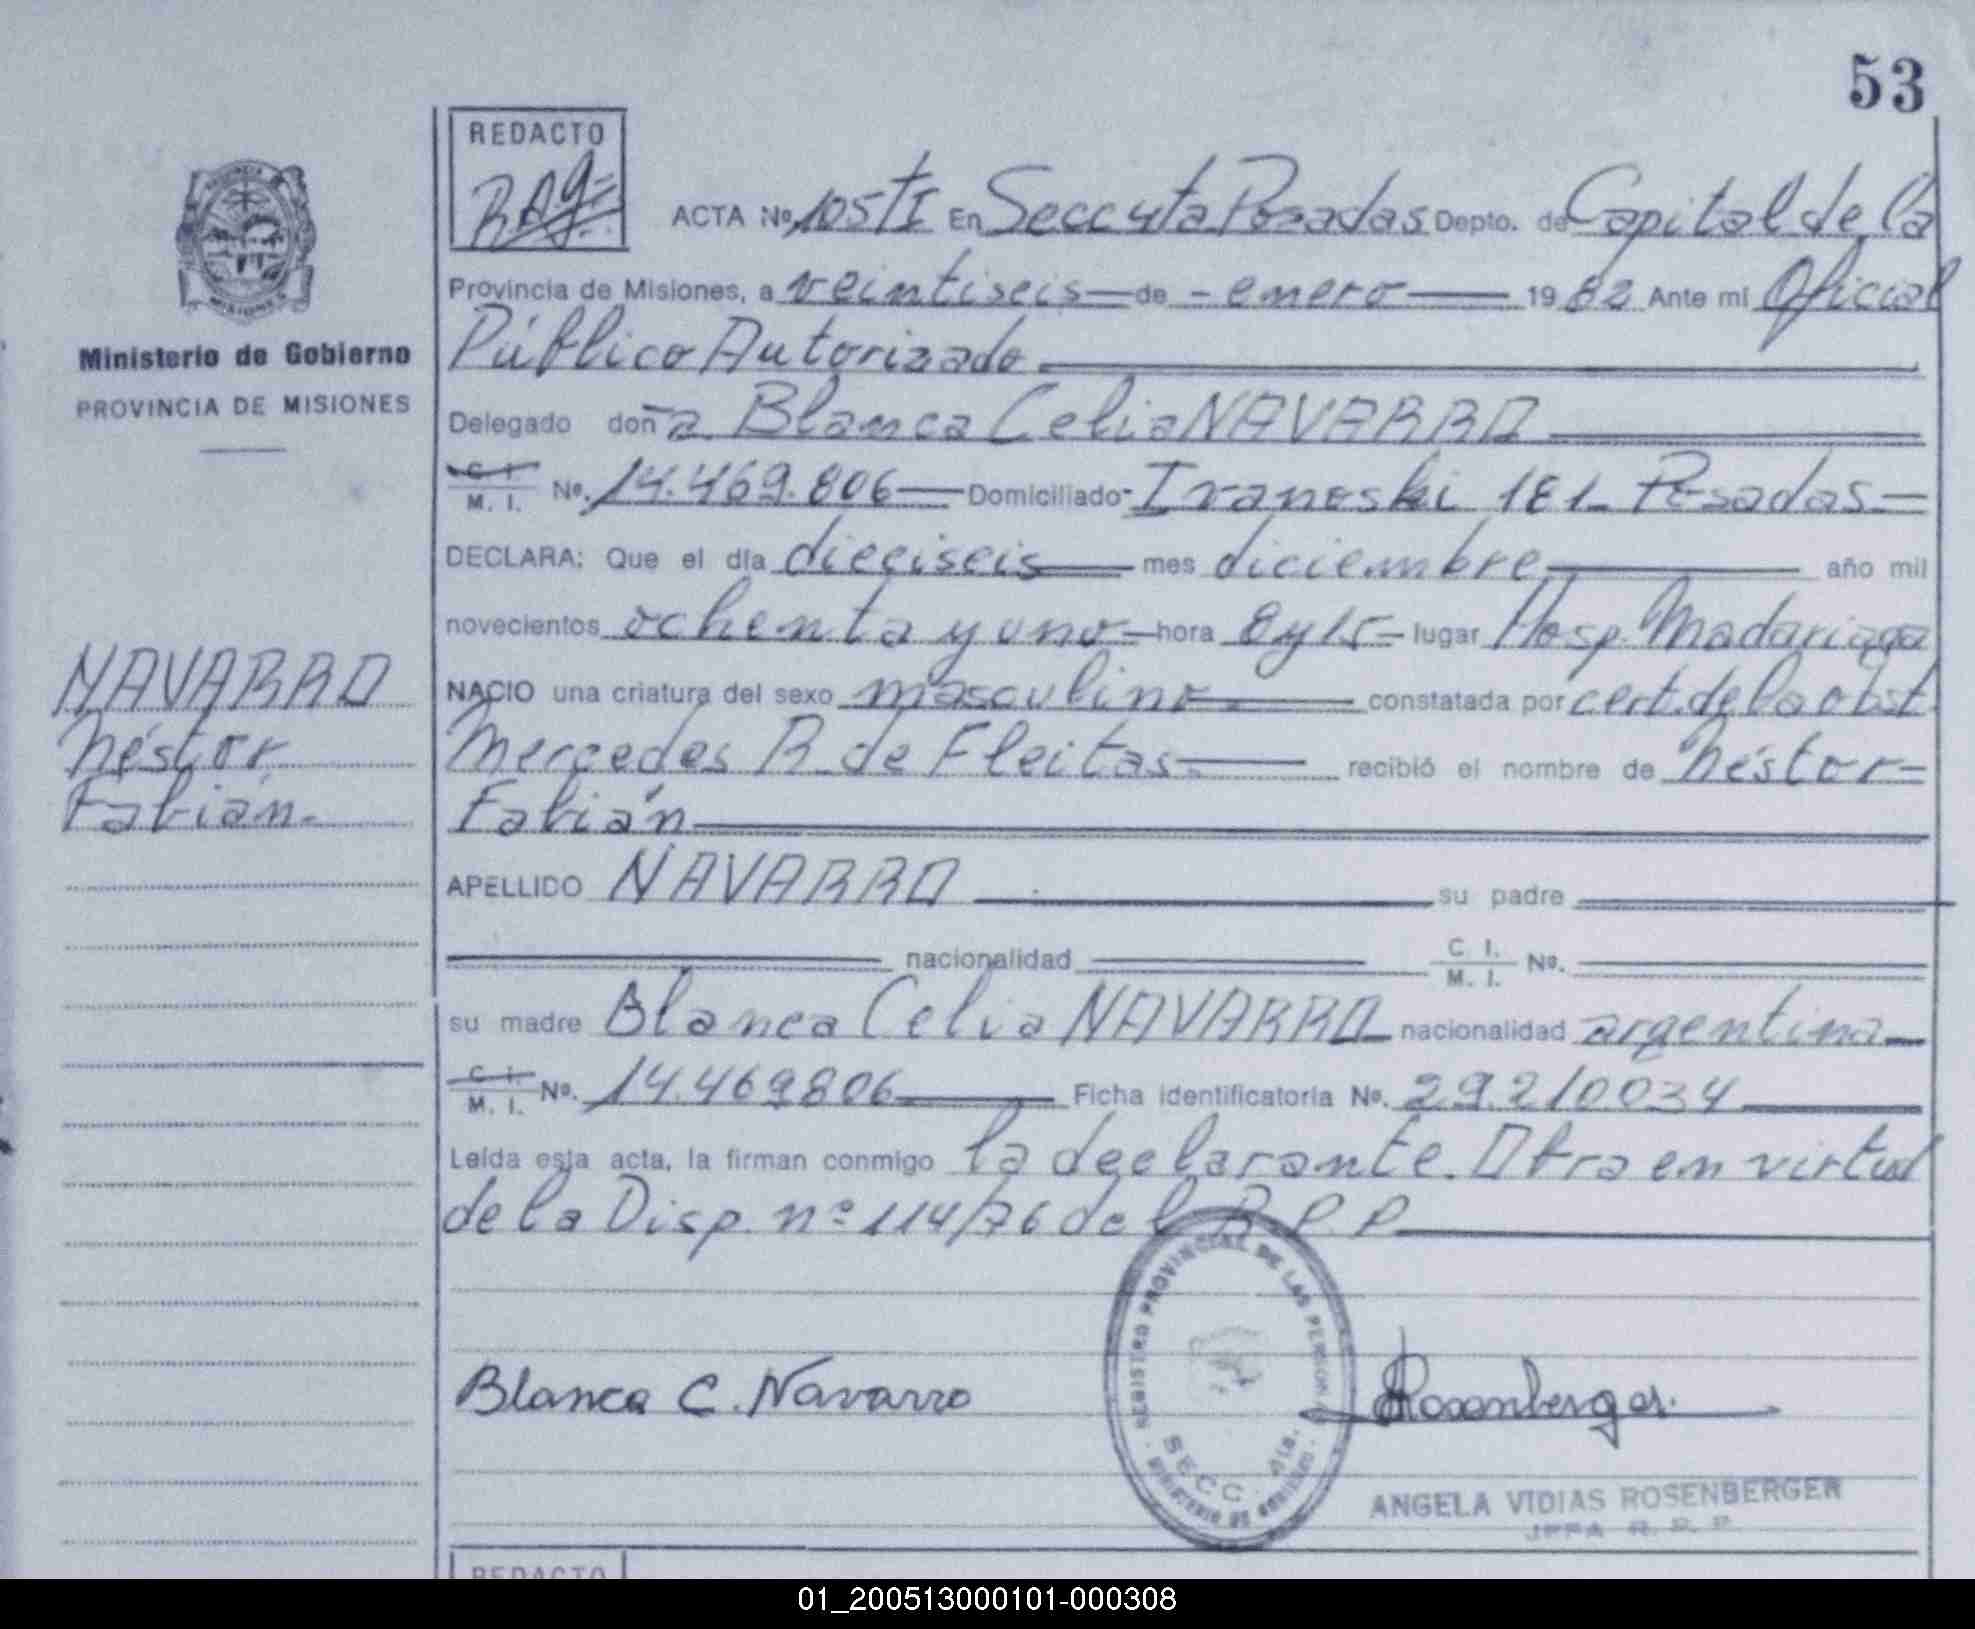 53
REDACTO
ACTA Nº 105 TI En Secc 4ta Posadas Depto. de Capital de la
Provincia de Misiones, a veintiseis de - enero 1982 Ante mi Oficial
Público Autorizado
Ministerio de Gobierno
PROVINCIA DE MISIONES
Delegado doña Blanca Celia NAVARRO
C. I. / M. I. Nº. 14.469.806 Domiciliado Ivanoski 181- Posadas-
DECLARA: Que el día dieciseis mes diciembre año mil
novecientos ochenta y uno hora 8 y 15 lugar Hosp. Madariaga
NACIO una criatura del sexo masculino constatada por cert. de la obst.
Mercedes R. de Fleitas recibió el nombre de Néstor-
Fabián
NAVARRO
Néstor
Fabián.-
APELLIDO NAVARRO su padre
nacionalidad C. I. / M. I. Nº.
su madre Blanca Celia NAVARRO nacionalidad argentina
C. I. / M. I. Nº. 14.469806 Ficha identificatoria Nº. 29.210034
Leída esta acta, la firman conmigo la declarante. Obra en virtud
de la Disp. nº 114/76 del R. P. P.
REGISTRO PROVINCIAL DE LAS PERSONAS
SECC. 4ta.
MINISTERIO DE GOBIERNO
Blanca C. Navarro
Rosenberger
ANGELA VIDIAS ROSENBERGER
JEFA R. P. P.
REDACTO
01_200513000101-000308